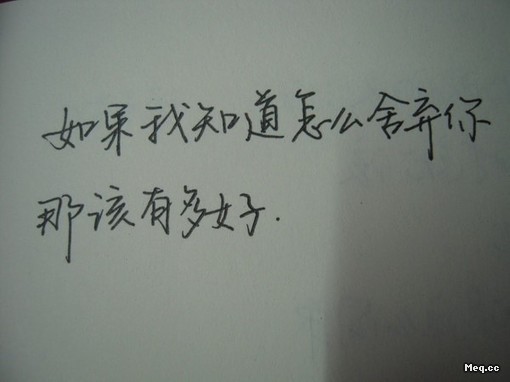 如果我知道怎么舍弃你
那该有多好.
Meq.cc